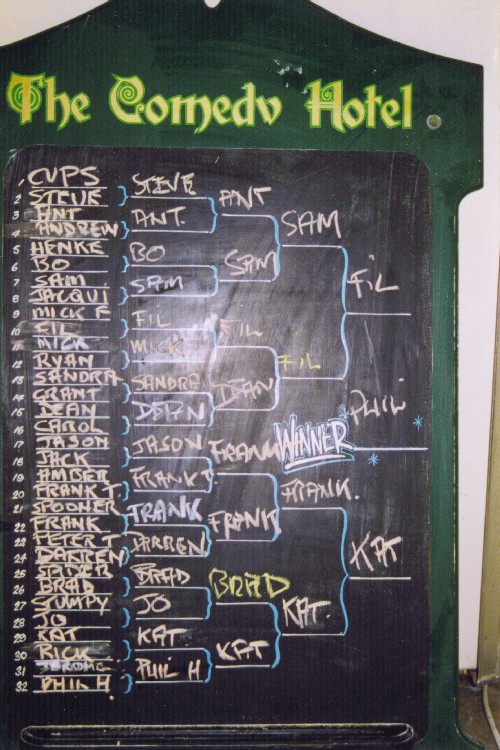 The Comedy Hotel
1 CUPS
2 STEVE
3 ANT
4 ANDREW
5 HENKE
6 BO
7 SAM
8 JACQUI
9 MICK F
10 FIL
11 MICK
12 RYAN
13 SANDRA
14 GRANT
15 DEAN
16 CAROL
17 JASON
18 JACK
19 AMBER
20 FRANK T.
21 SPOONER
22 FRANK
23 PETER T
24 DARREN
25
26 BRAD
27 STUMPY
28 JO
29 KAT
30 RICK
31 JEROME
32 PHIL H.
STEVE
ANT.
BO
SAM
FIL
MICK
SANDRA
DEAN
JASON
FRANK T.
FRANK
DARREN
BRAD
JO
KAT
PHIL H
ANT
SAM
FIL
DEAN
FRANK
FRANK
BRAD
KAT
SAM
FIL
FRANK.
KAT.
FIL
KAT
PHIL
WINNER